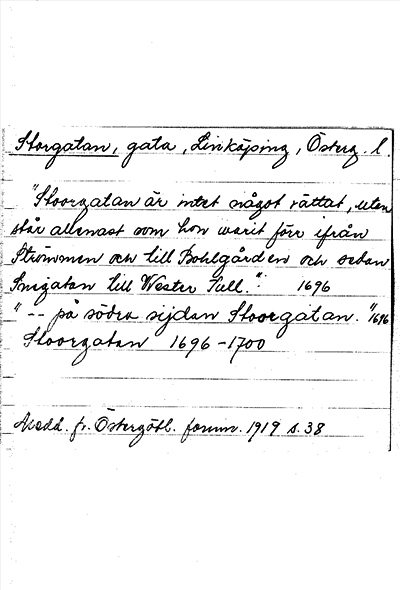 Storgatan, gata, Linköping, Österg. l.
"Stoorgatan är intet något rättat, uten
står allenast som hon warit förr ifrån
Strömmen och till Bohlgården och sedan
Snigatan till Wester Tull." 1696
" -- på södra sijdan Stoorgatan." 1696
Stoorgatan 1696-1700
Medd. fr. Östergötl. fornm. 1919 s. 38